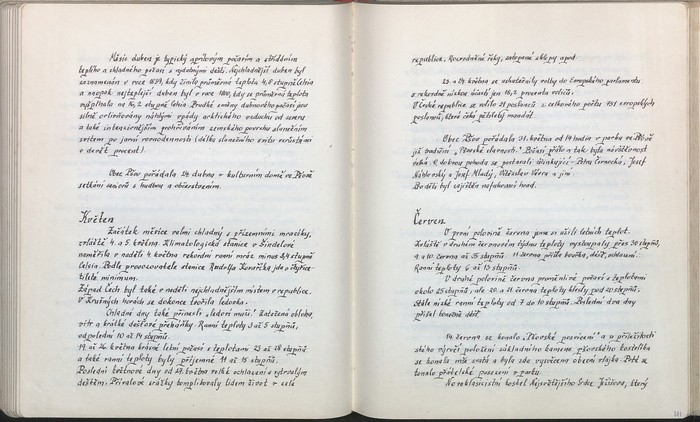 Měsíc duben je typický aprílovým počasím a střídáním
teplého a chladného počasí s vydatnými dešti. Nejchladnější duben byl
zaznamenán v roce 1839, kdy činila průměrná teplota 4,6 stupně Celsia
a naopak nejteplejší duben byl v roce 1800, kdy se průměrná teplota
vyšplhala na 16,2 stupně Celsia. Prudké změny dubnového počasí jsou
silně ovlivňovány náhlými vpády arktického vzduchu od severu
a také intenzivnějším prohříváním zemského povrchu slunečním
svitem po jarní rovnodennosti (délka slunečního svitu vzrůstá
o devět procent).
Obec Pšov pořádala 24. dubna v kulturním domě ve Pšově
setkání seniorů s hudbou a občerstvením.
Květen
Začátek měsíce velmi chladný s přízemními mrazíky,
zvláště 4. a 5. května. Klimatologická stanice v Šindelové
naměřila v neděli 4. května rekordní ranní mráz minus 8,4 stupně
Celsia. Podle provozovatele stanice Rudolfa Kovaříka jde o čtyřice-
tileté minimum.
Západ Čech byl také v neděli nejchladnějším místem v republice.
V Krušných horách se dokonce tvořila ledovka.
Chladné dny také přinesli „ledoví muži." Zatažená obloha,
vítr a krátké dešťové přeháňky. Ranní teploty 3 až 5 stupňů,
odpolední 10 až 14 stupňů.
19. až 26. května krásné letní počasí s teplotami 23 až 28 stupňů
a také ranní teploty byly příjemné 11 až 15 stupňů.
Poslední květnové dny od 27. května velké ochlazení s vytrvalým
deštěm. Přívalové srážky komplikovaly lidem život v celé
republice. Rozvodněné řeky, zatopené sklepy apod.
23. a 24. května se uskutečnily volby do Evropského parlamentu
s rekordně nízkou účastí jen 18,2 procenta voličů.
V České republice se volilo 21 poslanců z celkového počtu 751 evropských
poslanců, které čeká pětiletý mandát.
Obec Pšov pořádala 31. května od 14 hodin v parku ve Pšově
již tradiční „Pšovské slavnosti." Počasí přálo a tak byla návštěvnost
velká. O dobrou pohodu se postarali účinkující - Petra Černocká, Josef
Náhlovský a Josef Mladý, Vítězslav Vávra a jiní.
Pro děti byl zajištěn nafukovací hrad.
Červen
V první polovině června jsme si užili letních teplot.
Zvláště v druhém červnovém týdnu teploty vystoupaly přes 30 stupňů,
9. a 10. června až 35 stupňů. 11. června přišla bouřka, déšť, ochlazení.
Ranní teploty 6 až 13 stupňů.
V druhé polovině června proměnlivé počasí s teplotami
okolo 25 stupňů, ale 20. a 21. června teploty klesly pod 20 stupňů.
Stále nízké ranní teploty od 7 do 10 stupňů. Poslední dva dny
přišel konečně déšť.
14. června se konalo „Pšovské posvícení" a u příležitosti
stého výročí položení základního kamene pšovského kostelíka
se konala mše svatá a byla zde vysvěcena obecní vlajka. Poté se
konalo přátelské posezení v parku.
Novoklasicistní kostel Nejsvětějšího Srdce Ježíšova, který